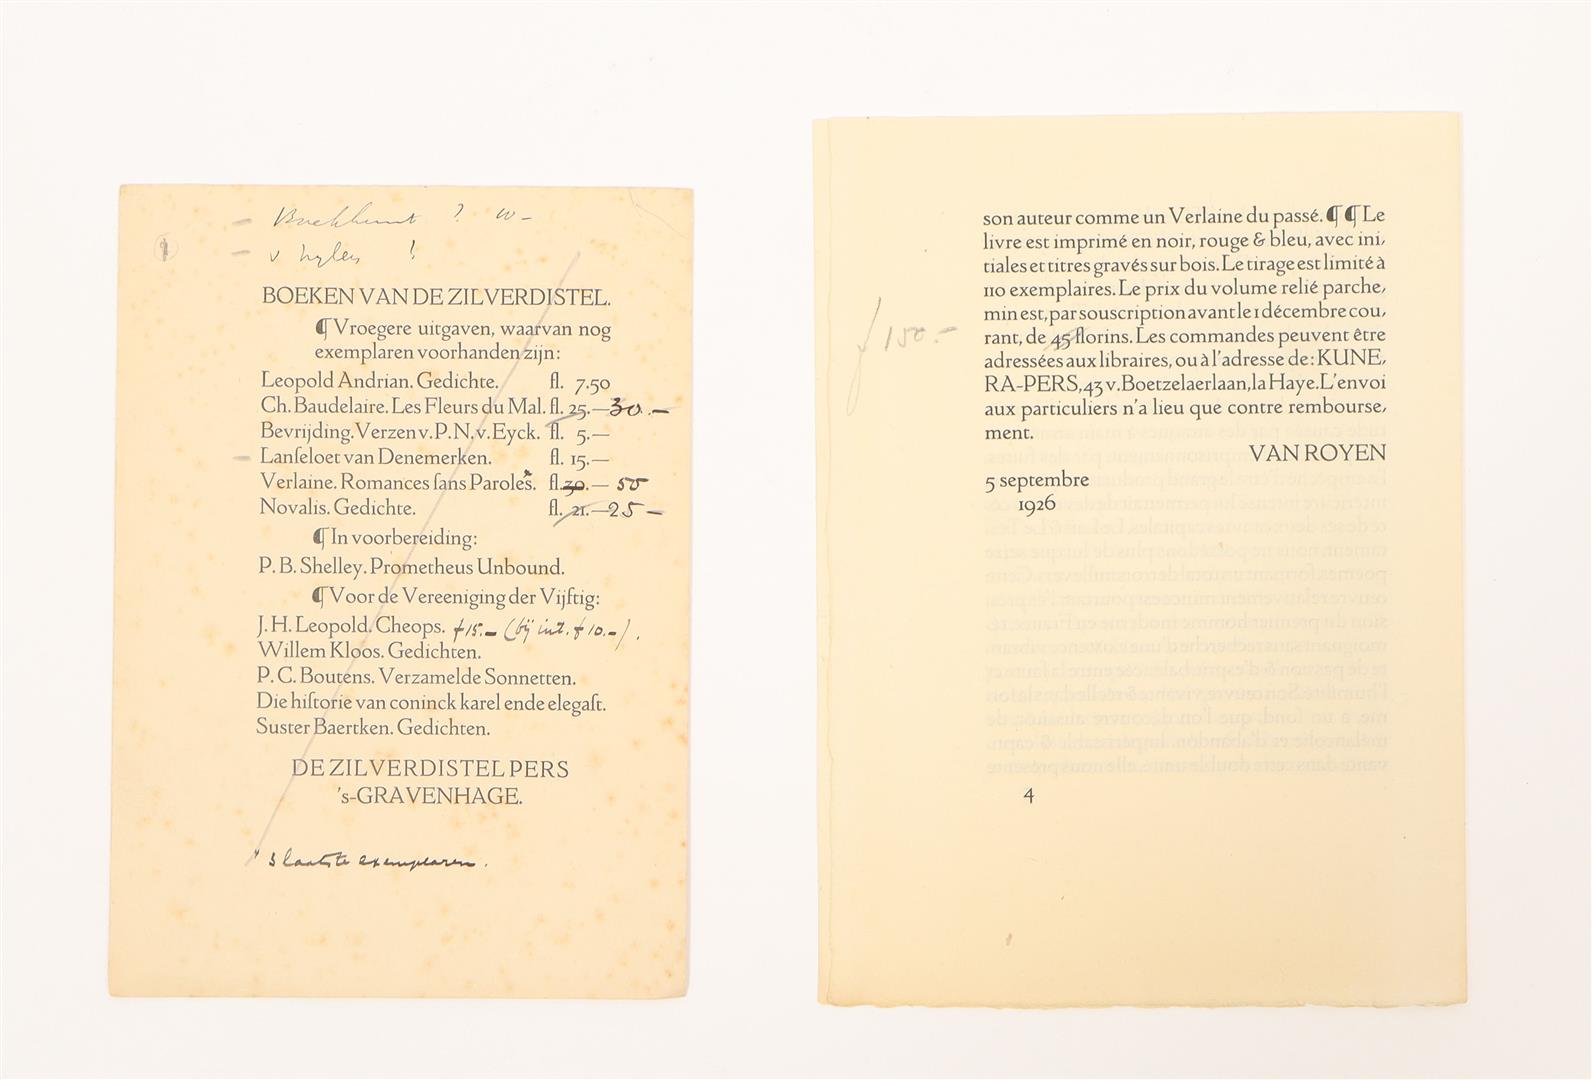 BOEKEN VAN DE ZILVERDISTEL.
¶ Vroegere uitgaven, waarvan nog
exemplaren voorhanden zijn:
Leopold Andrian. Gedichte. fl. 7.50
Ch. Baudelaire. Les Fleurs du Mal. fl. 25.— 30.—
Bevrijding. Verzen v. P. N. v. Eyck. fl. 5.—
Lanſeloet van Denemerken. fl. 15.—
Verlaine. Romances ſans Paroles. fl. 30.— 50
Novalis. Gedichte. fl. 21.— 25—
¶ In voorbereiding:
P. B. Shelley. Prometheus Unbound.
¶ Voor de Vereeniging der Vijftig:
J. H. Leopold. Cheops. f 15.— (bij int. f 10.—).
Willem Kloos. Gedichten.
P. C. Boutens. Verzamelde Sonnetten.
Die hiſtorie van coninck karel ende elegaſt.
Suster Baertken. Gedichten.
DE ZILVERDISTEL PERS
's-GRAVENHAGE.
3 laatste exemplaren.
son auteur comme un Verlaine du passé. ¶ ¶ Le
livre est imprimé en noir, rouge & bleu, avec ini,
tiales et titres gravés sur bois. Le tirage est limité à
110 exemplaires. Le prix du volume relié parche,
min est, par souscription avant le 1 décembre cou,
rant, de 45 florins. Les commandes peuvent être
f 150.—
adressées aux libraires, ou à l'adresse de: KUNE,
RA-PERS, 43 v. Boetzelaerlaan, la Haye. L'envoi
aux particuliers n'a lieu que contre rembourse,
ment.
VAN ROYEN
5 septembre
1926
4